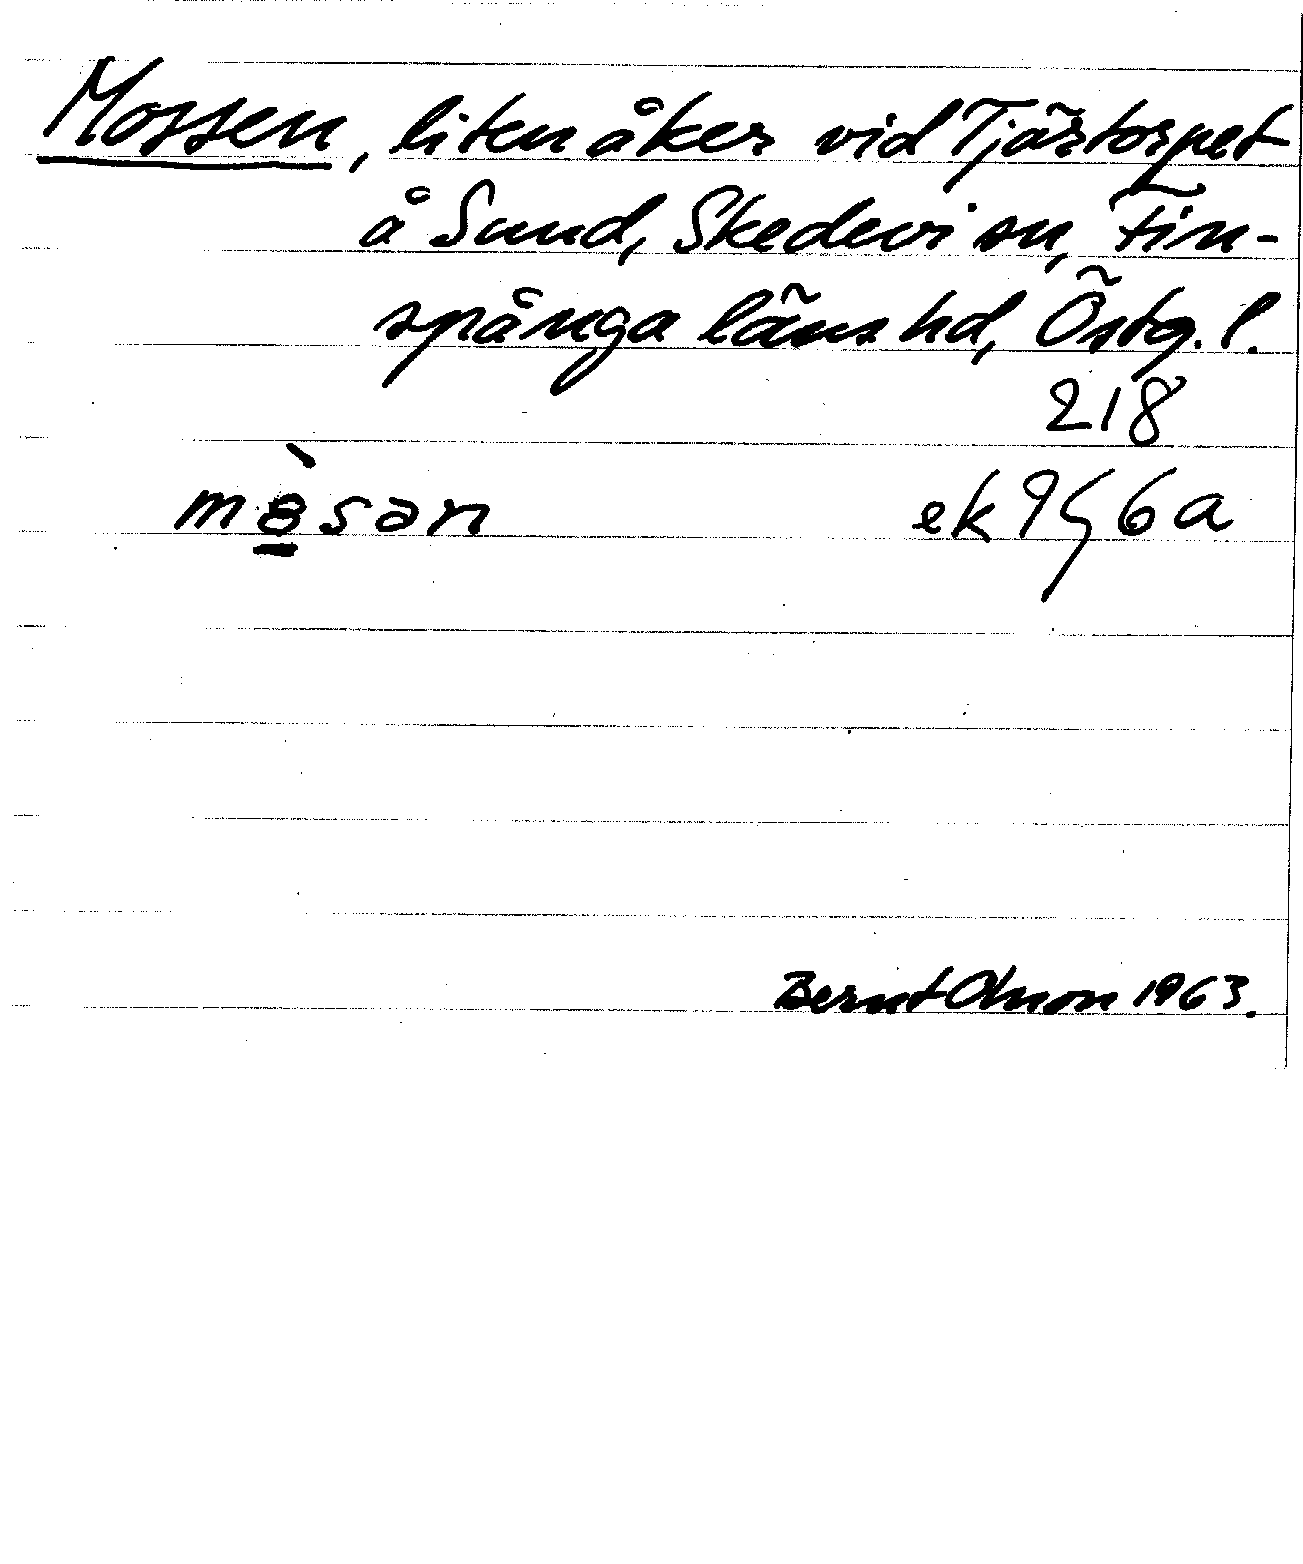 Mossen, liten åker vid Tjärtorpet
å Sund, Skedevi sn, Fin-
spånga läns hd, Östg. l.
218
ek 956a
Bernt Olsson 1963.